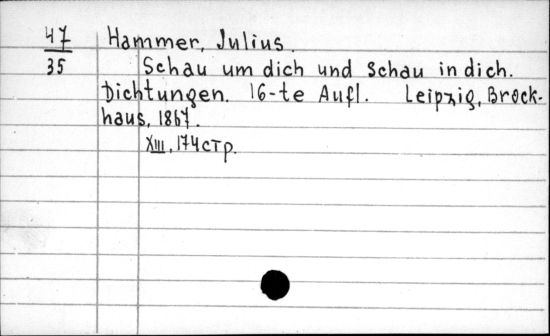 47 Hammer, Julius.
35 Schau um dich und Schau in dich.
Dichtungen. 16-te Aufl. Leipzig, Brock-
haus, 1867.
XIII, 174 стр.